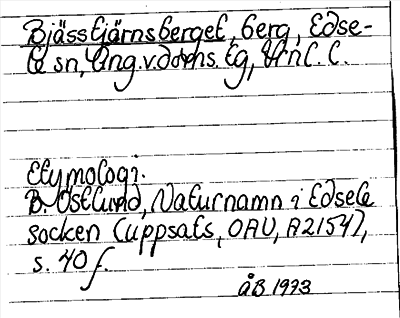 Bjässtjärnsberget, berg, Edse-
le sn, Ång.v.doms. tg, Vrnl. l.
Etymologi.
B. Östlund, Naturnamn i Edsele
socken (uppsats, OAU, A2154),
s. 40 f.
ÅB 1973